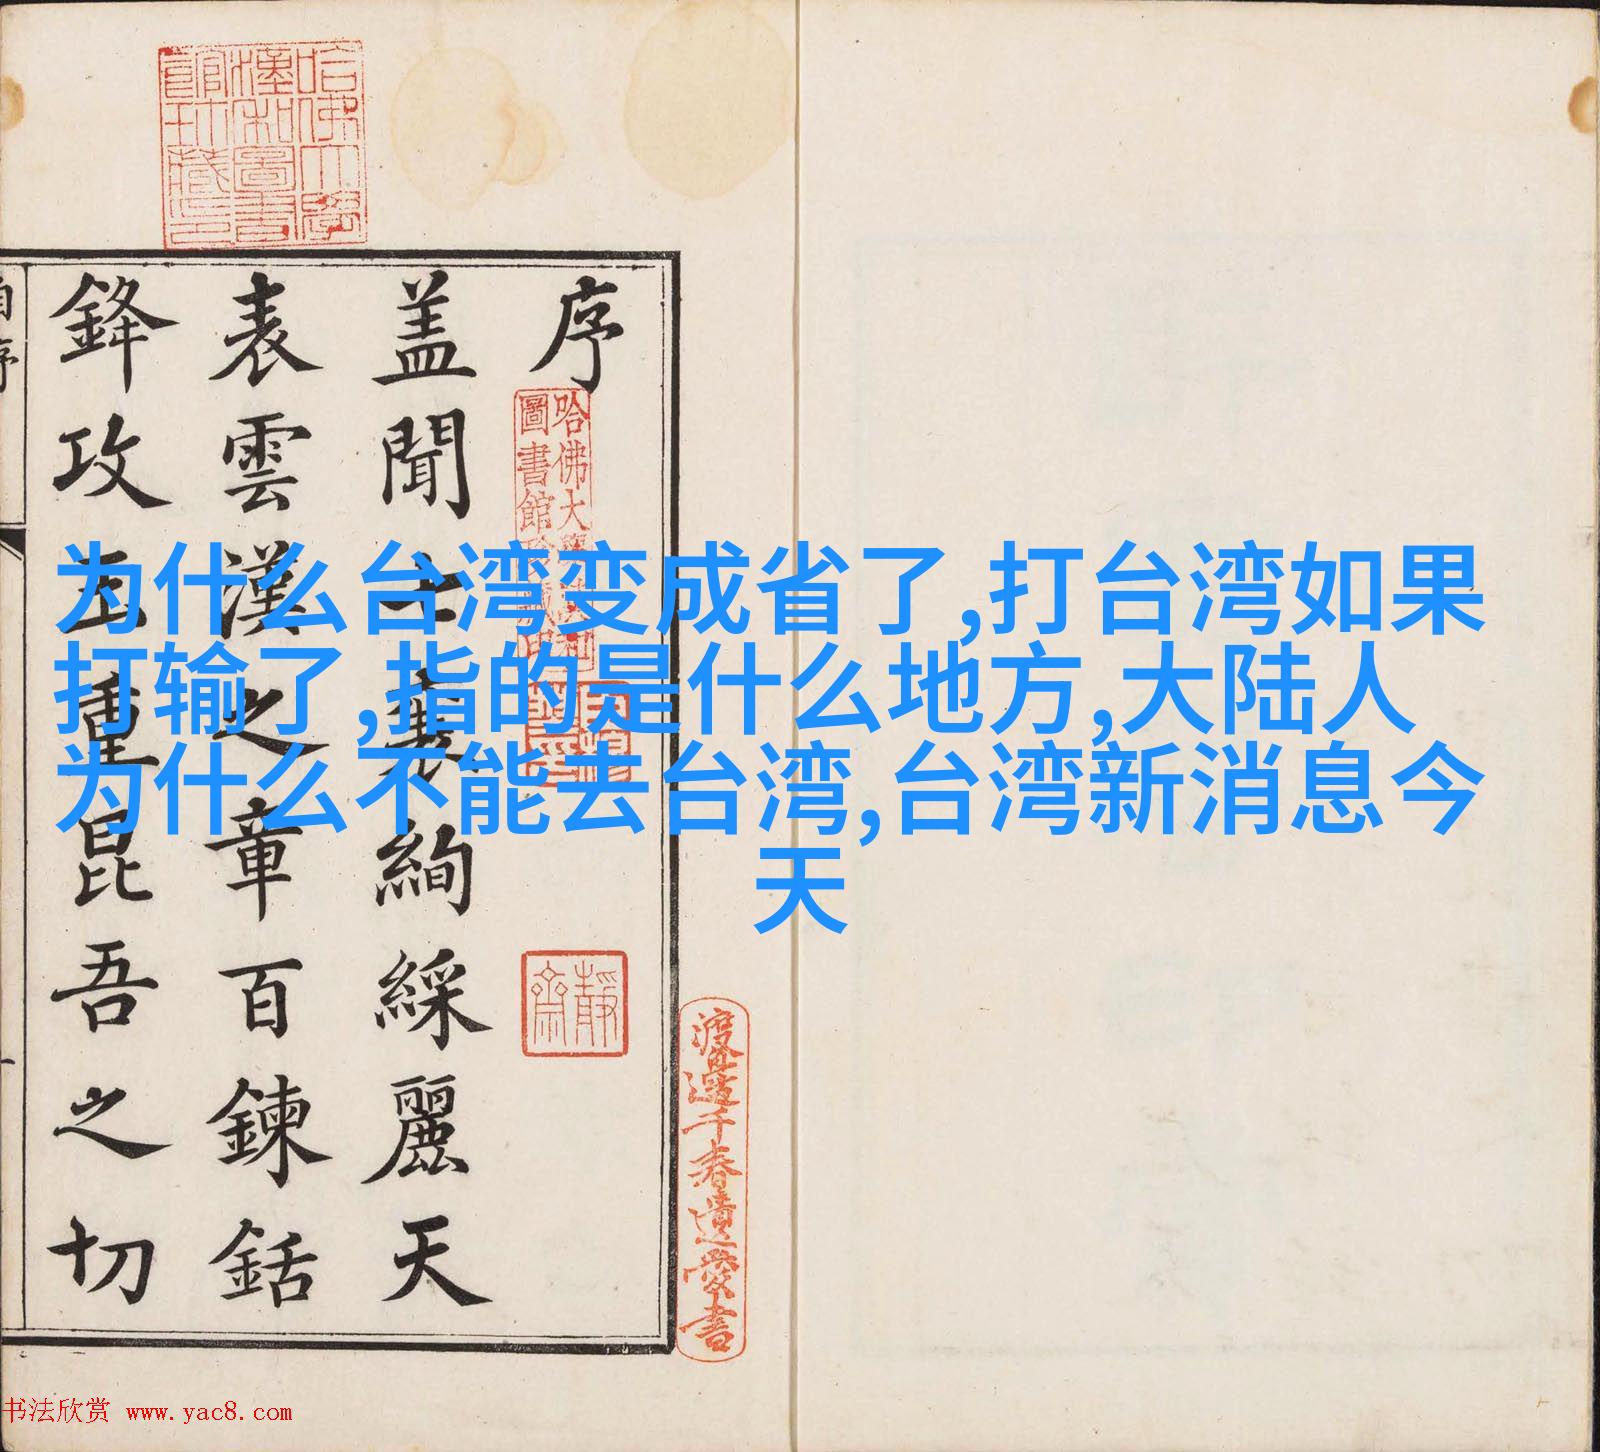 为什么台湾变成省了,打台湾如果
打输了,指的是什么地方,大陆人
为什么不能去台湾,台湾新消息今
天
序
盖聞士裁絢綵麗天
表雲漢之章百鍊銛
鋒攻玉重昆吾之切
自序
哈佛大學
漢和圖書
館珍藏印
哈佛大
圖書館珍藏印
靜
齋
渡邊千春遺愛書
书法欣赏 www.yac8.com